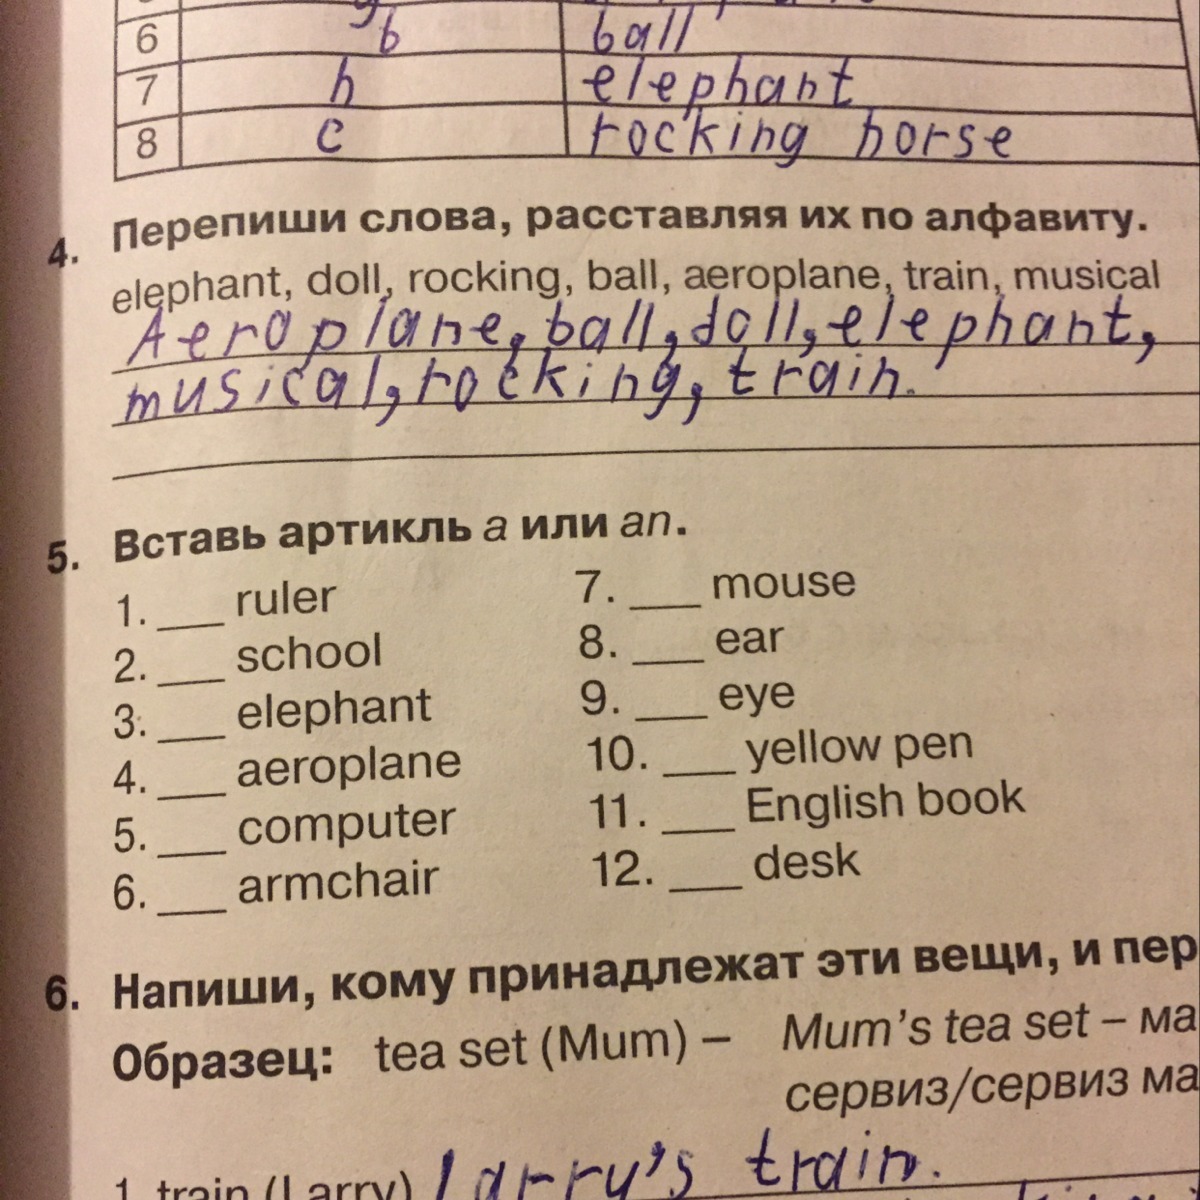 6 b ball
7 h elephant
8 c rocking horse
4. Перепиши слова, расставляя их по алфавиту.
elephant, doll, rocking, ball, aeroplane, train, musical
Aeroplane, ball, doll, elephant,
musical, rocking, train.
5. Вставь артикль a или an.
1. ___ ruler
2. ___ school
3. ___ elephant
4. ___ aeroplane
5. ___ computer
6. ___ armchair
7. ___ mouse
8. ___ ear
9. ___ eye
10. ___ yellow pen
11. ___ English book
12. ___ desk
6. Напиши, кому принадлежат эти вещи, и пер
Образец: tea set (Mum) – Mum's tea set – ма
сервиз/сервиз ма
1. train (Larry) Larry's train.